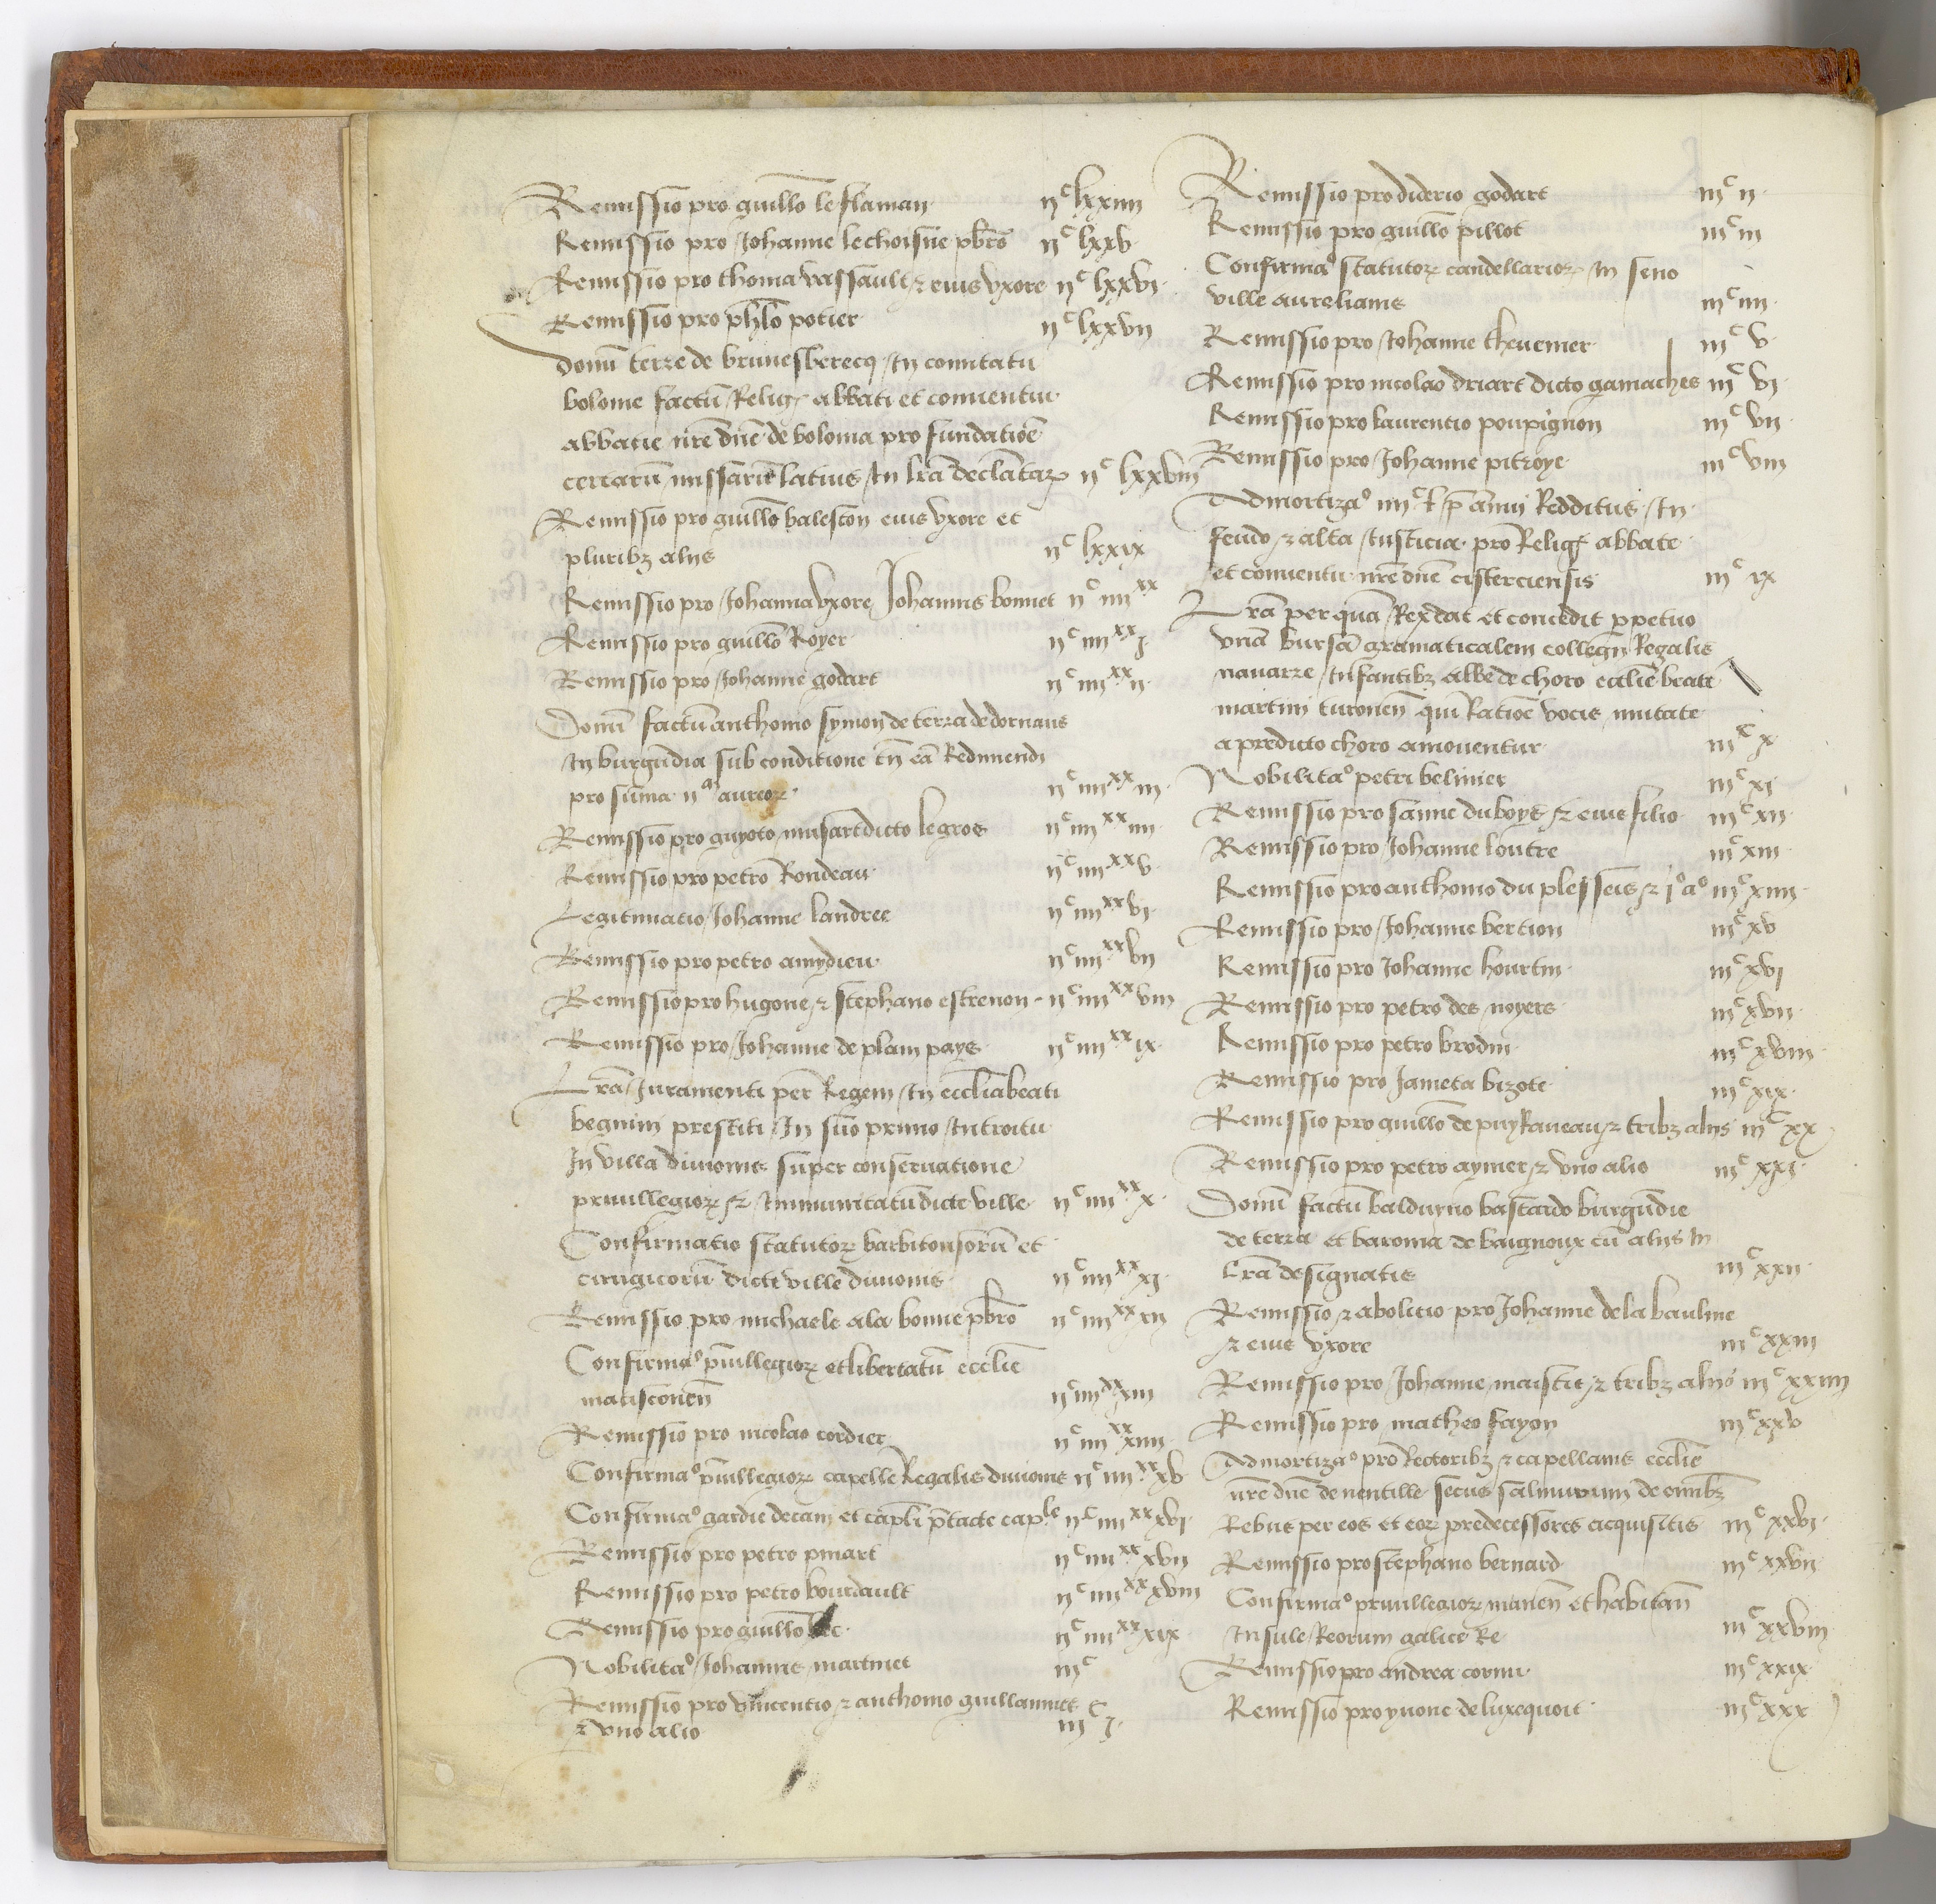 Remissio pro guillo le flaman ijc lxxiiij
Remissio pro Johanne lechoisne pbro ijc lxxv
Remissio pro thoma vassault & eius vxore ijc lxxvj
Remissio pro phlo potier ijc lxxvij
Donu terre de brunesberecq In comitatu
bolonie factu Relig abbati et conuentui
abbatie nre dne de bolonia pro fundatioe
certaru missaru latius In lra declatar ijc lxxviij
Remissio pro guillo baleston eius vxore et
pluribz alijs ijc lxxix
Remissio pro Johanna vxore Johannis bonnet ijc iiijxx
Remissio pro guillo Royer ijc iiijxx j
Remissio pro Johanne godart ijc iiijxx ij
Donu factu anthonio symon de terra de dornans
In burgundia sub conditione tn ea Redimendi
pro suma ijm aureor ijc iiijxx iij
Remissio pro guyoto musart dicto le gros ijc iiijxx iiij
Remissio pro petro Rondeau ijc iiijxx v
Legitimatio Johanne landree ijc iiijxx vj
Remissio pro petro amydieu ijc iiijxx vij
Remissio pro hugone & stephano estrenon ijc iiijxx viij
Remissio pro Johanne de plain pays ijc iiijxx ix
Lra Juramenti per Regem In ecclia beati
begnini prestiti In suo primo Introitu
In villa diuionis super conseruatione
priuillegior & Immunitatu dicte ville ijc iiijxx x
Confirmatio statutor barbitonsoru et
cirugicoru dicte ville diuionis ijc iiijxx xj
Remissio pro michaele ala bonne pbro ijc iiijxx xij
Confirmao priuillegior et libertatu ecclie
matisconen ijc iiijxx xiij
Remissio pro nicolao cordier ijc iiijxx xiiij
Confirmao priuillegior capelle Regalis diuionis ijc iiijxx xv
Confirmao gardie decani et capli ptacte caple ijc iiijxx xvj
Remissio pro petro pinart ijc iiijxx xvij
Remissio pro petro bourdault ijc iiijxx xviij
Remissio pro guillo ijc iiijxx xix
Nobilitao Johannis martinet iijc
Remissio pro vincentio & anthonio guillaumet
& vno alio iijc j
Remissio pro diderio godart iijc ij
Remissio pro guillo pillot iijc iij
Confirmao statutor candellarior In seno
ville aurelianis iijc iiij
Remissio pro Johanne theuenier iijc v
Remissio pro nicolao driart dicto gamaches iijc vj
Remissio pro laurentio poupignon iijc vij
Remissio pro Johanne pitroye iijc viij
Admortizao iiijc l p annui Redditus In
feudo & alta Iusticia pro Relig abbate
et conuentu nre dne cisterciensis iijc ix
Lra per qua Rex dat et concedit perpetuo
vna bursa gramaticalem collegij Regalis
nauarre Infantibz albe de choro ecclie beati
martini turonen qui Ratioe vocis mutate
a predicto choro amouentur iijc x
Nobilitao petri belinier iijc xj
Remissio pro sanne duboys & eius filio iijc xij
Remissio pro Johanne loutre iijc xiij
Remissio pro anthonio du plesseis & jo ao iijc xiiij
Remissio pro Johanne bertion iijc xv
Remissio pro Johanne hourtin iijc xvj
Remissio pro petro des noyers iijc xvij
Remissio pro petro brodin iijc xviij
Remissio pro Jameta bizote iijc xix
Remissio pro guillo de puyRaueau & tribz alijs iijc xx
Remissio pro petro aymer & vno alio iijc xxj
Donu factu balduyno bastardo burgundie
de terra et baronia de baignoux cu alijs In
lra designatis iijc xxij
Remissio & abolitio pro Johanne de la baulme
& eius vxore iijc xxiij
Remissio pro Johanne maistre & tribz alijs iijc xxiiij
Remissio pro matheo fayon iijc xxv
Admortizao pro Rectoribz & capellanis ecclie
nre dne de nentille secus salmurum de omibz
Rebus per eos et eor predecessores acquisitis iijc xxvj
Remissio pro stephano bernard iijc xxvij
Confirmao priuillegior manen et habitan
Insule Reorum galice Re iijc xxviij
Remissio pro andrea cornu iijc xxix
Remissio pro yuone de luxequoit iijc xxx